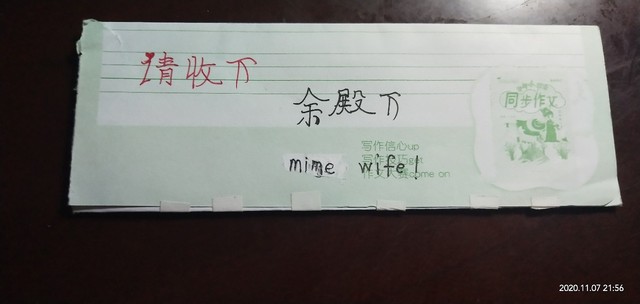 请收下
余殿下
mime wife!
写作信心up
同步作文
2020.11.07 21:56